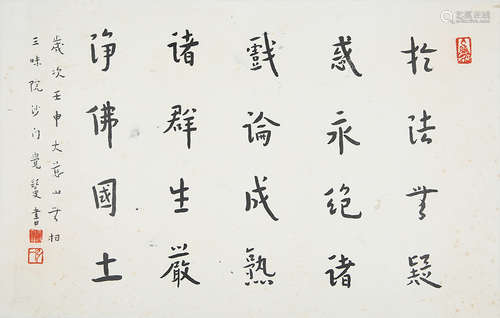 於法無疑
惑永絕諸
戲論成熟
諸群生嚴
淨佛國土
歲次壬申大嶼山無相
三昧院沙門覺
書